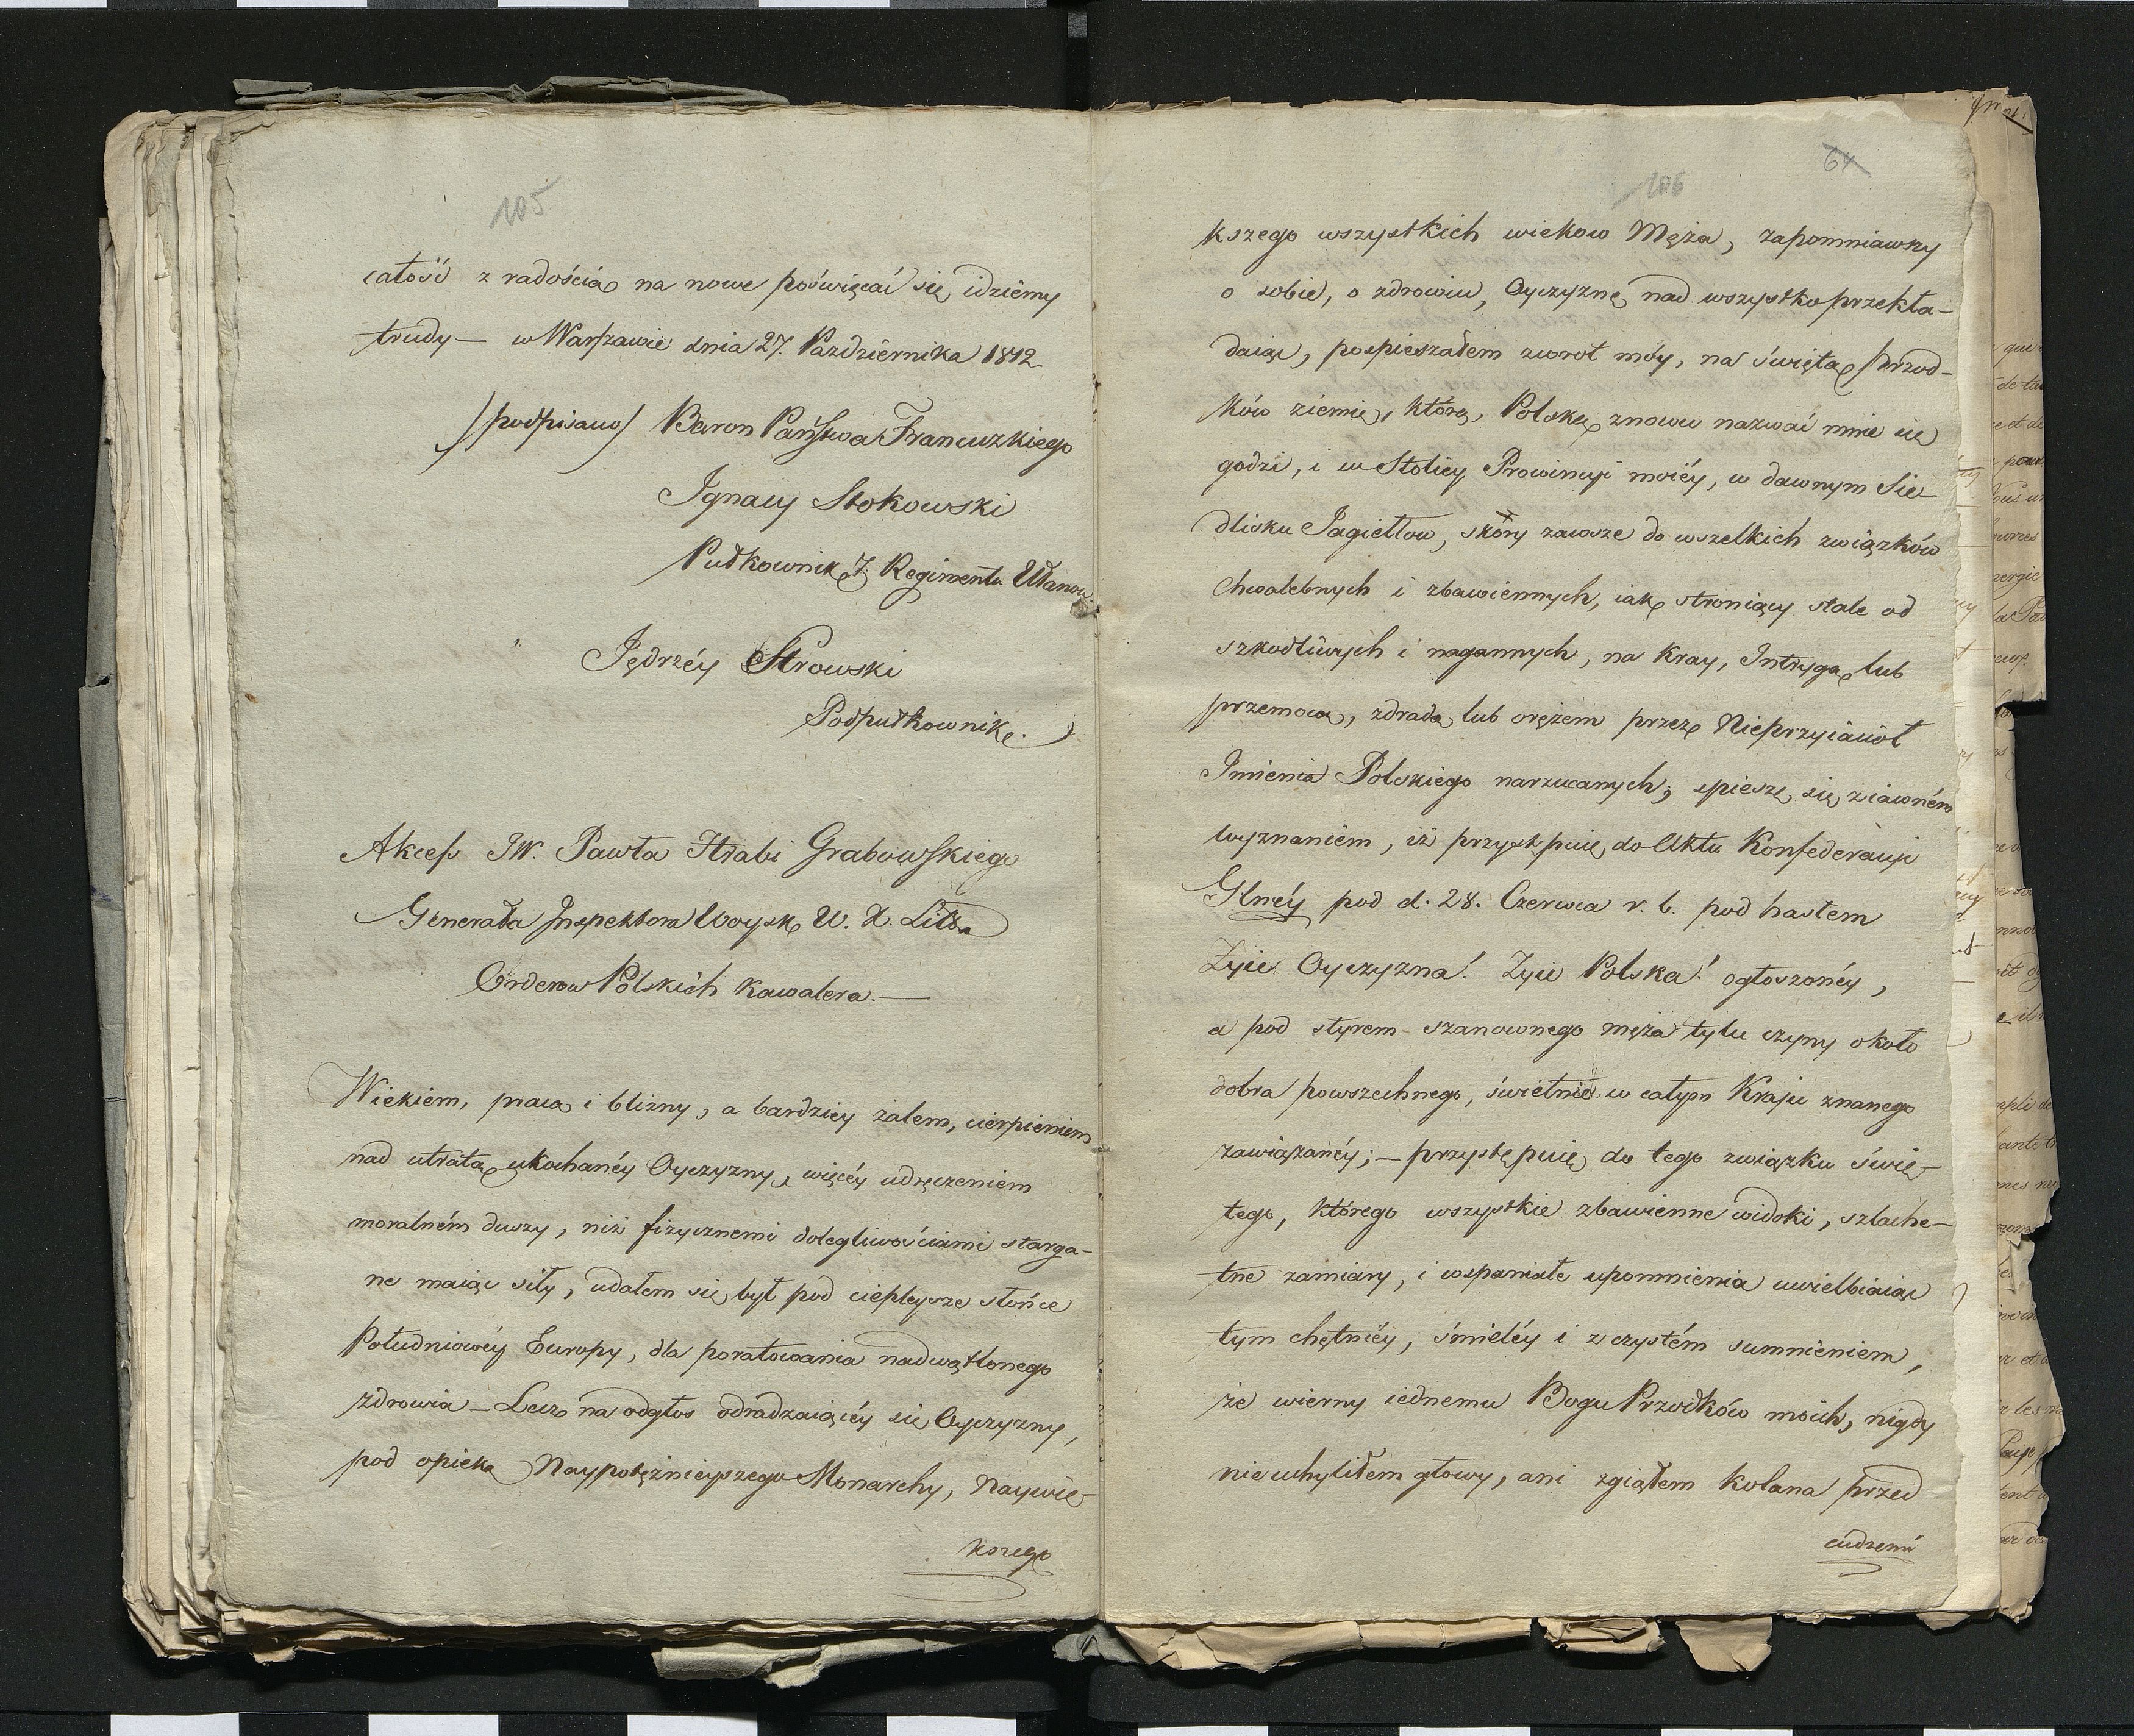 105
całość z radością na nowe poświęcać się idziemy
trudy — w Warszawie dnia 27. Pazdziernika 1812
/podpisano/ Baron Państwa Francuzkiego
Ignacy Stokowski
Pułkownik 7. Regimentu Ułanow.
Jędrzéy Strowski
Podpułkownik.
Akcess JW. Pawła Hrabi Grabowskiego
Generała Inspektora Woysk W. X. Litt.
Orderow Polskich Kawalera. —
Wiekiem, pracą i blizny, a bardziey żalem, cierpieniem
nad utratą ukochanéy Oyczyzny, więcéy udręczeniem
moralném duszy, niż fizycznemi dolegliwościami starga-
ne maiąc siły, udałem się był pod cieplejsze słońce
Południowéy Europy, dla poratowania nadwątlonego
zdrowia — Lecz na odgłos odradzaiącéy się Oyczyzny,
pod opieką Naypotężnieyszego Monarchy, Naywię-
kszego
64
106
kszego wszystkich wiekow Męża, zapomniawszy
o sobie, o zdrowiu, Oyczyznę nad wszystko przekła-
daiąc, pospieszałem zwrot móy, na świętą Przod-
ków ziemię, którą, Polską znowu nazwać mnie się
godzi, i w Stolicy Prowincyi moiéy, w dawnym Sie-
dlisku Jagiełłow, skóry zawsze do wszelkich związków
chwalebnych i zbawiennych, iak stroniący stale od
szkodliwych i nagannych, na Kray, Intrygą lub
przemocą, zdradą lub orężem przez Nieprzyiaciół
Imienia Polskiego narzucanych; spieszę się z iawném
wyznaniem, iż przystępuię do Aktu Konfederacyi
Glnéy pod d. 28. Czerwca r. b. pod hasłem
Żyie Oyczyzna! Żyie Polska! ogłoszonéy,
a pod styrem szanownego męża tylu czyny około
dobra powszechnego, świetnie w całym Kraju znanego
zawiązanéy; — przystępuię do tego związku świę-
tego, którego wszystkie zbawienne widoki, szlache-
tne zamiary, i wspaniałe upomnienia uwielbiaiąc
tym chętniéy, śmieléy i z czystém sumnieniem,
że wierny iednemu Bogu Przodków moich, nigdy
nie uchyliłem głowy, ani zgiąłem kolana przed
cudzemu